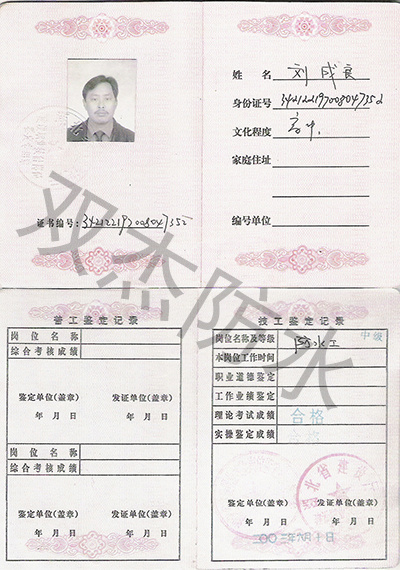 姓名 刘成良
身份证号 342122197008047352
文化程度 高中
家庭住址
证书编号: 342122197008047352
编号单位
双杰防水
普工鉴定记录
岗位名称
综合考核成绩
鉴定单位(盖章) 发证单位(盖章)
年月日 年月日
岗位名称
综合考核成绩
鉴定单位(盖章) 发证单位(盖章)
年月日 年月日
技工鉴定记录
中级
岗位名称及等级 防水工
本岗位工作时间
职业道德鉴定
工作业绩鉴定
理论考试成绩 合格
实操鉴定成绩 合格
北省建设
鉴定单位(盖章) 发证单位(盖章)
年月日 年月日